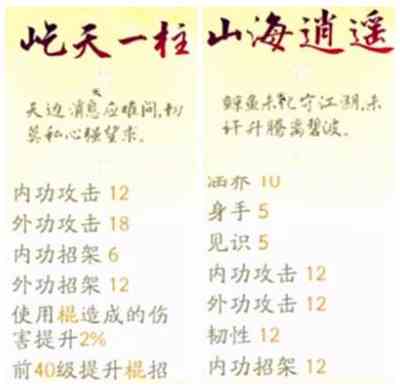 屹天一柱
天边消息应难问,切
莫私心强望求。
内功攻击 12
外功攻击 18
内功招架 6
外功招架 12
使用棍造成的伤
害提升2%
前40级提升棍招
山海逍遥
鲸鱼未化守江湖,未
许升腾离碧波。
涵养 10
身手 5
见识 5
内功攻击 12
外功攻击 12
韧性 12
内功招架 12